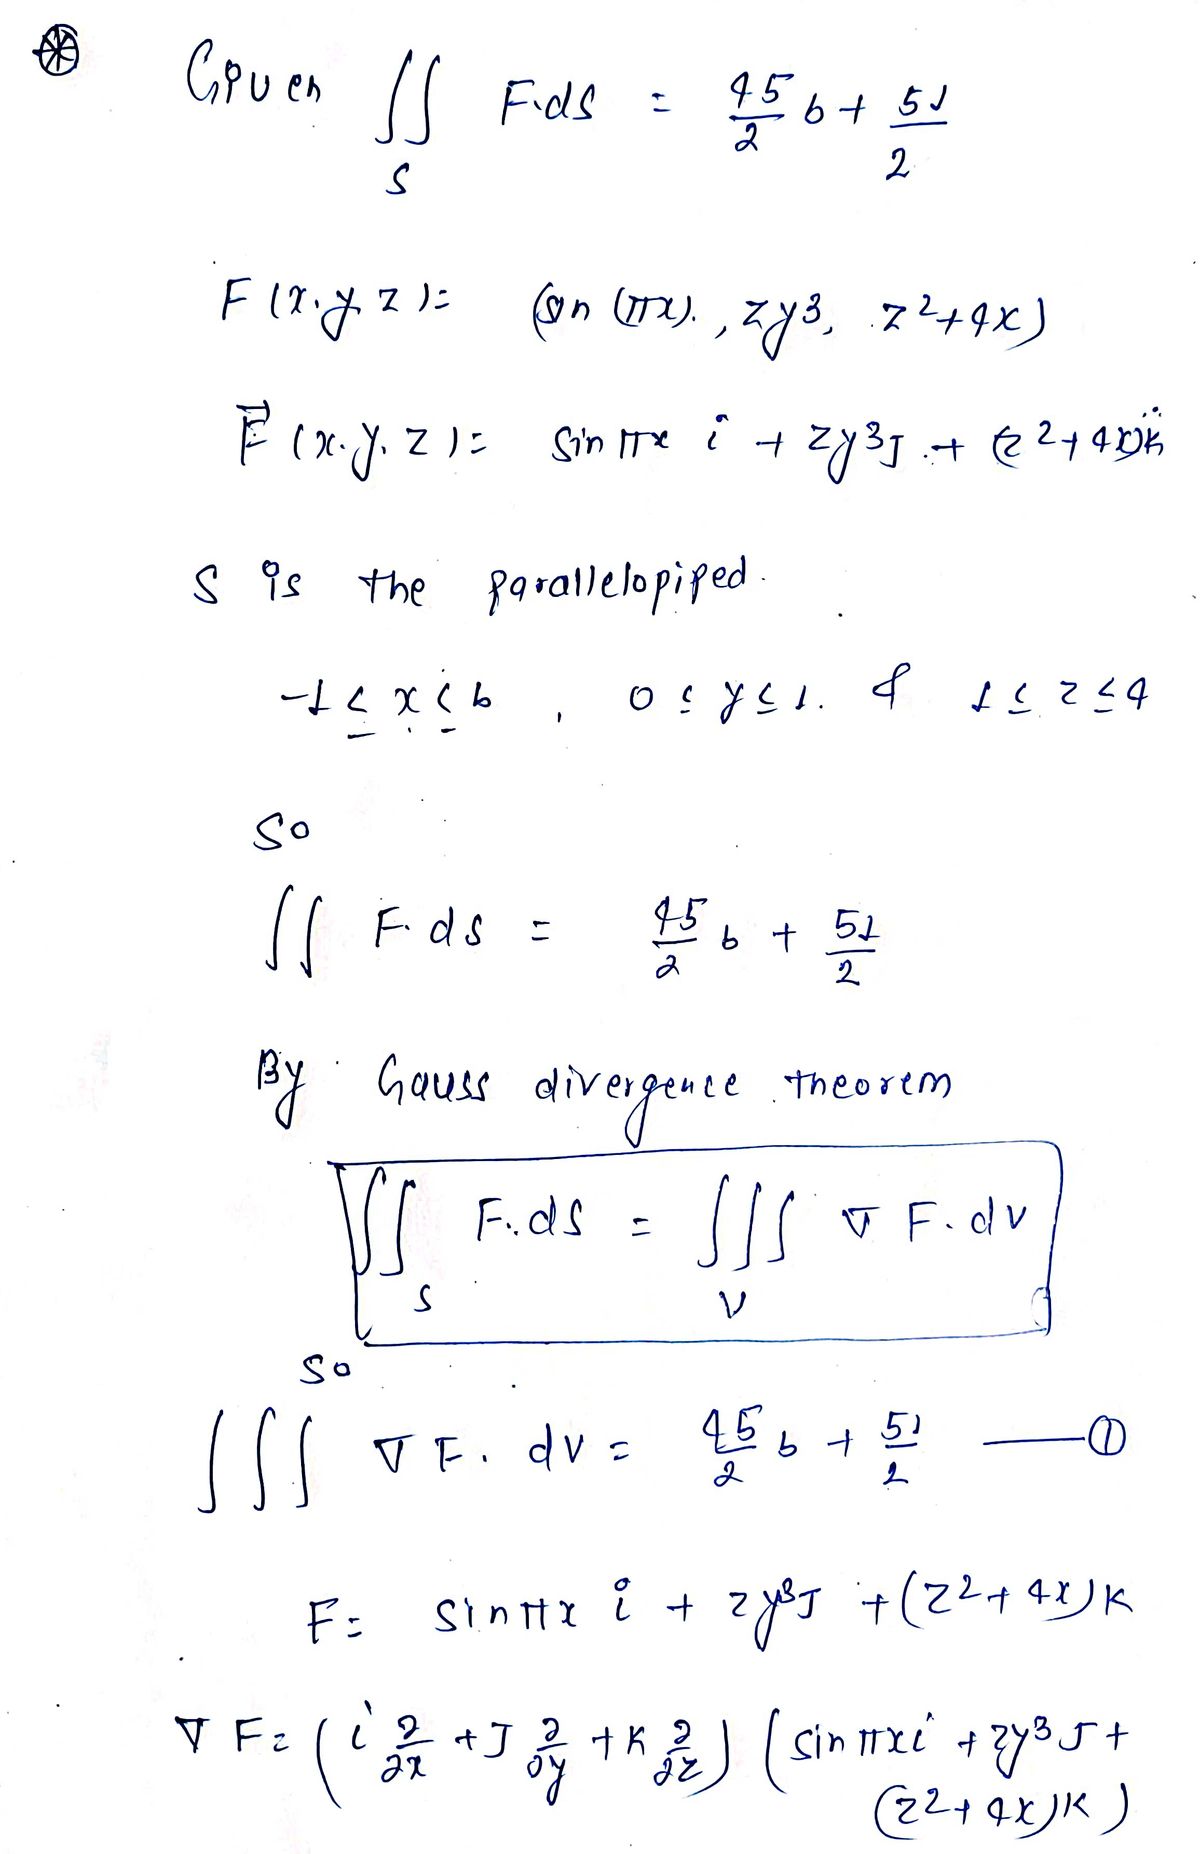 Given ∬_S F.ds = 45/2 b + 51/2
F(x.y.z) = (sin(πx)., zy³, z²+4x)
F⃗(x.y.z) = sin πx i + zy³J + (z²+4x)k
S is the parallelopiped.
-1 ≤ x ≤ b , 0 ≤ y ≤ 1. & 1 ≤ z ≤ 4
So
∬ F.ds = 45/2 b + 51/2
By Gauss divergence theorem
∬_S F.ds = ∭_V ∇ F.dv
So
∭ ∇ F. dv = 45/2 b + 51/2 —— ①
F = sin πx i + zy³J + (z²+4x)K
∇ F = (i ∂/∂x + J ∂/∂y + K ∂/∂z) (sin πx i + zy³ J +
(z²+4x)K)